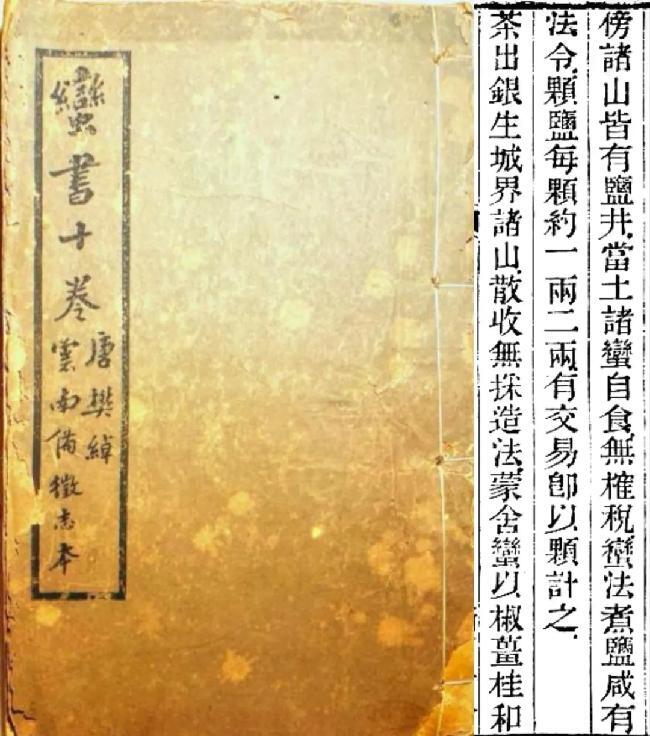 蠻書十卷
唐樊綽
雲南備徵志本
傍諸山皆有鹽井當土諸蠻自食無榷稅蠻法煮鹽咸有
法令顆鹽每顆約一兩二兩有交易卽以顆計之
茶出銀生城界諸山散收無採造法蒙舍蠻以椒薑桂和